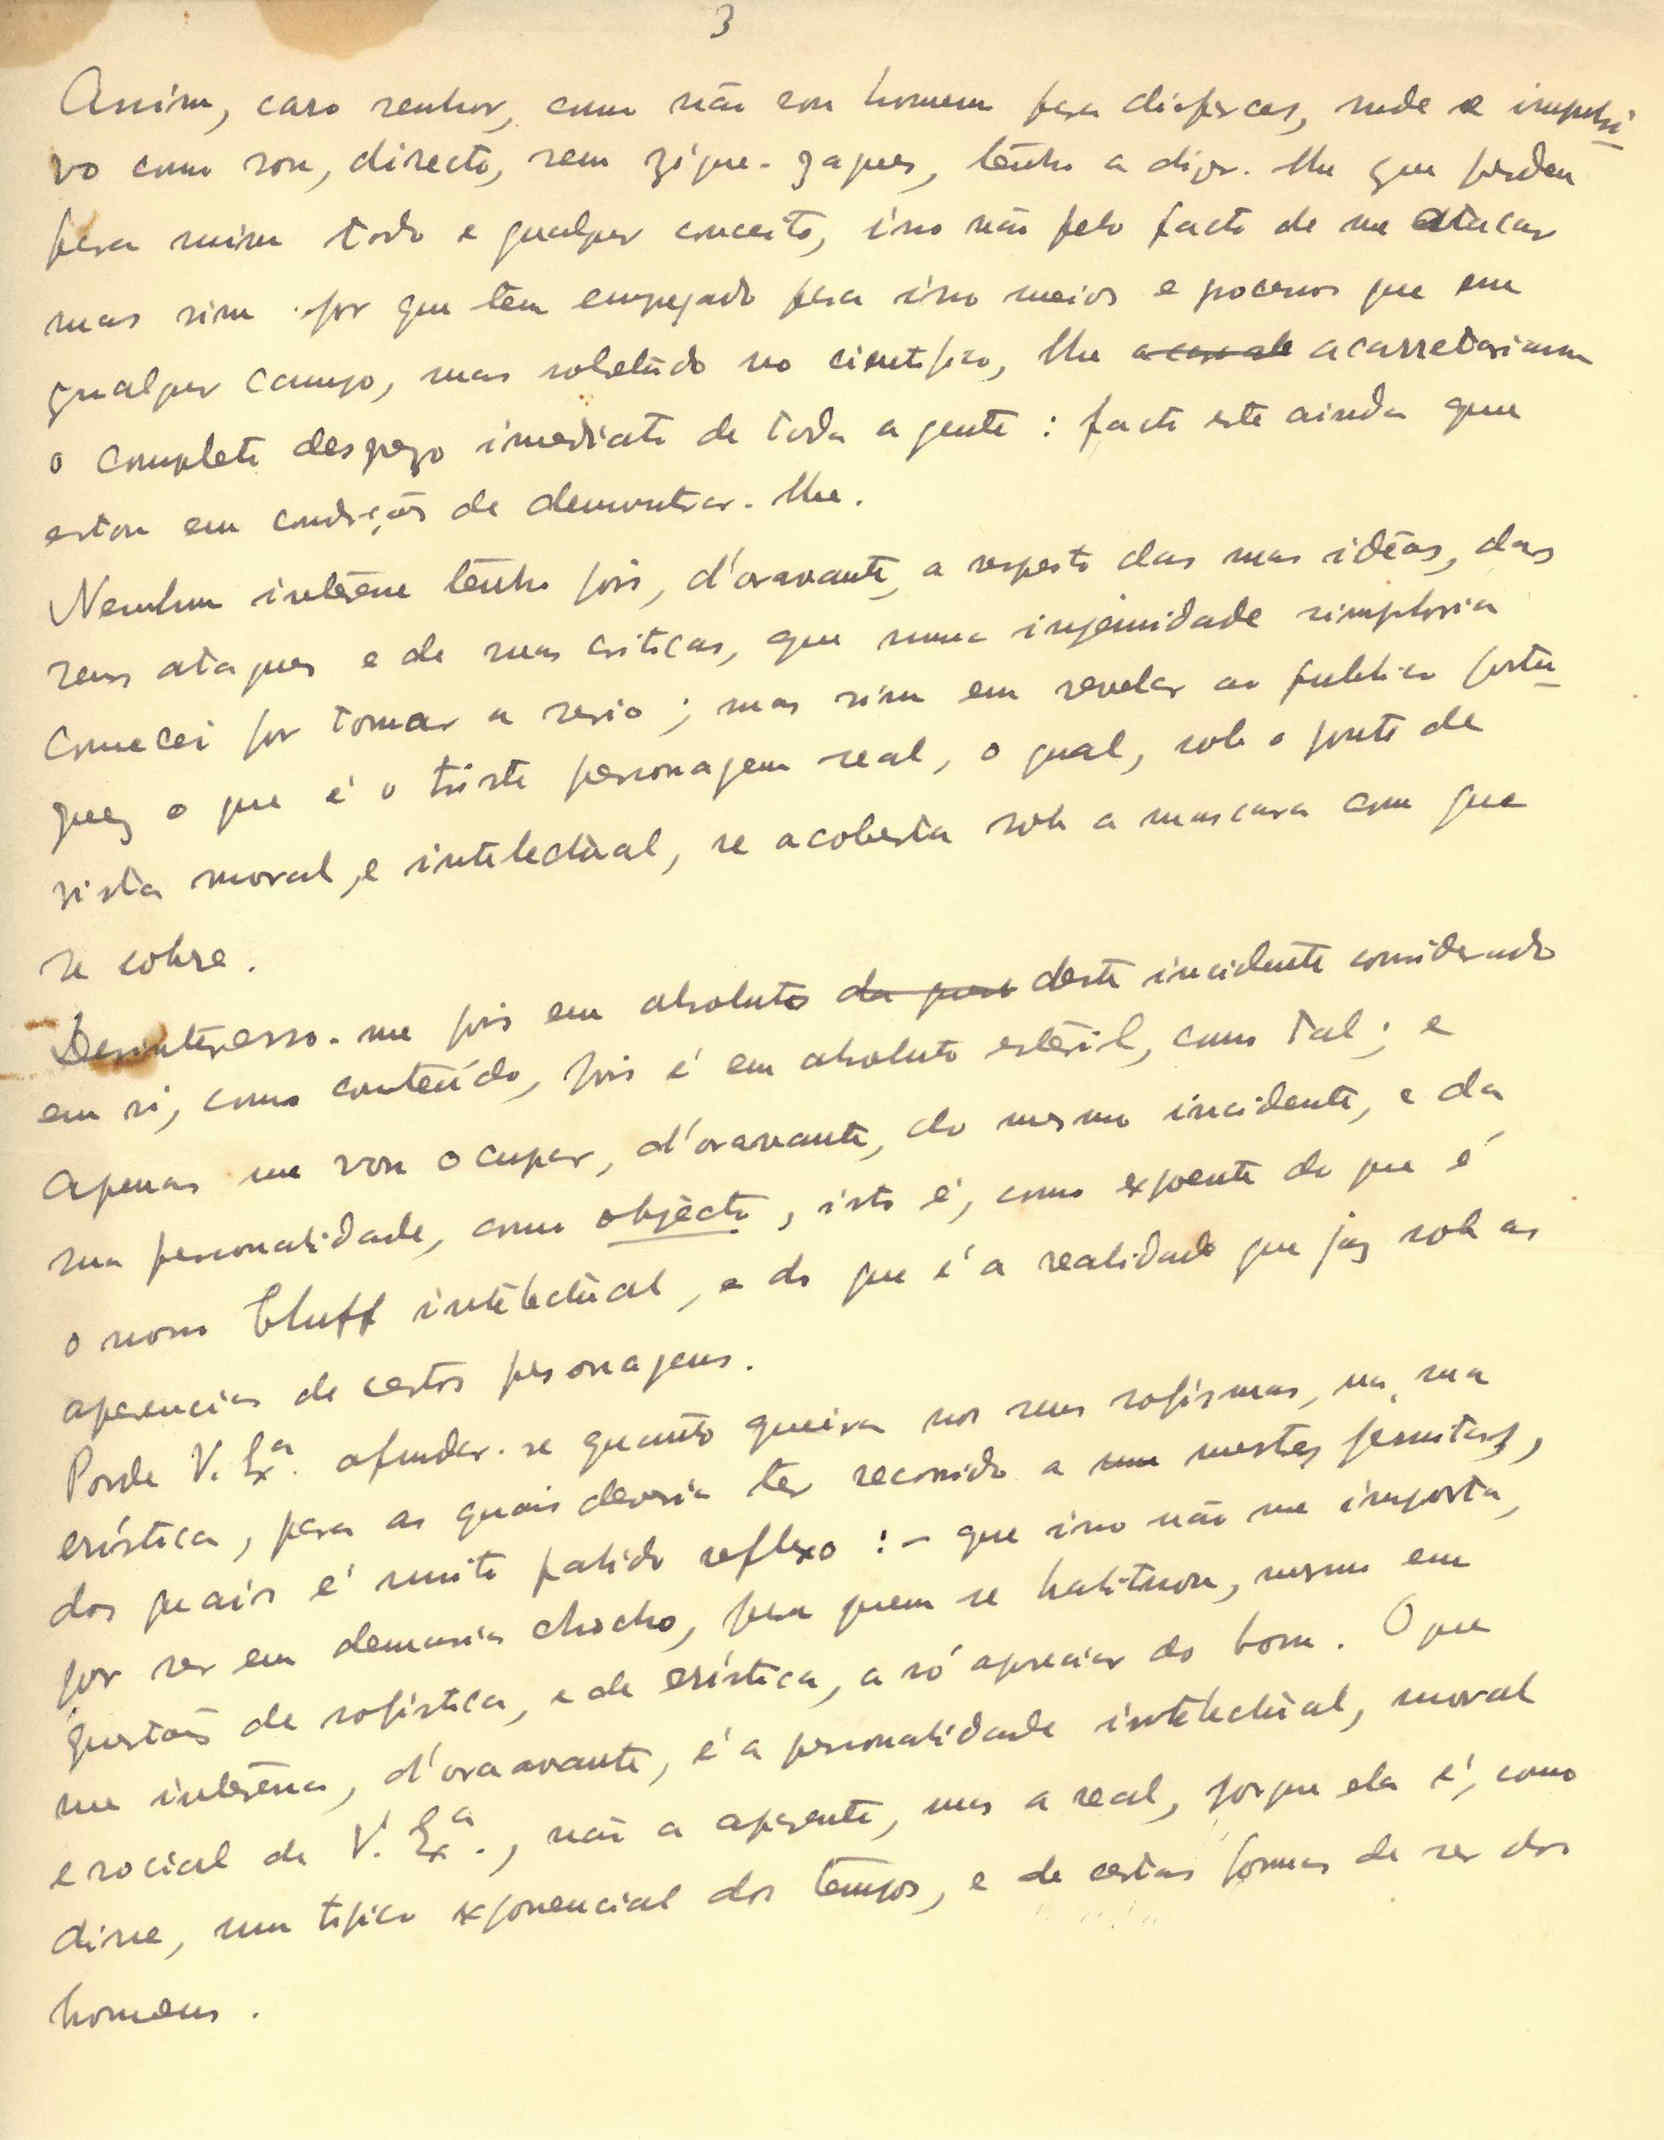 3
Assim, caro senhor, como não sou homem para disfarces, rude e impulsi-
vo como sou, directo, sem zigue-zagues, tenho a dizer-lhe que perdeu
para mim todo e qualquer conceito, isso não pelo facto de me atacar
mas sim por que tem empregado para isso meios e processos que em
qualquer campo, mas sobretudo no cientifico, lhe acarretariam
o completo desprezo imediato de toda a gente: facto este ainda que
estou em condições de demonstrar-lhe.
Nenhum interêsse tenho pois, d'oravante, a respeito das suas idéas, dos
seus ataques e de suas criticas, que numa ingenuidade simploria
comecei por tomar a serio; mas sim em revelar ao publico portu-
guez o que é o triste personagem real, o qual, sob o ponto de
vista moral, e intelectual, se acoberta sob a mascara com que
se cobre.
Desinteresso-me pois em absoluto deste incidente considerado
em si, como conteúdo, pois é em absoluto estéril, como tal; e
apenas me vou ocupar, d'oravante, do mesmo incidente, e da
sua personalidade, como objècto, isto é, como expoente do que é
o nosso bluff intelectual, e do que é a realidade que jaz sob as
aparencias de certos personagens.
Pode V. Exª. afundar-se quanto queira nos seus sofismas, na sua
erística, para as quais deveria ter recorrido a mestres jesuitas,
dos quais é muito palido reflexo: - que isso não me importa,
por ser em demasia chocho, para quem se habituou, mesmo em
questões de sofistica, e de erística, a só apreciar do bom. O que
me interêssa, d'oraavante, é a personalidade intelectual, moral
e social de V. Exª., não a aparente, mas a real, porque ela é, como
disse, um tipico exponencial dos tempos, e de certas formas de ser dos
homens.